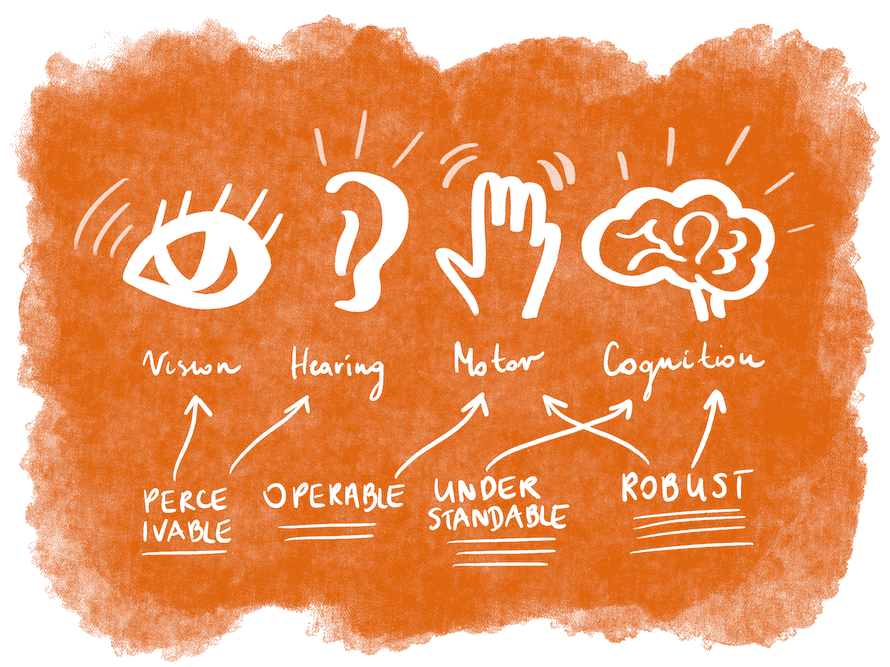 Vision Hearing Motor Cognition
PERCE
IVABLE
OPERABLE
UNDER
STANDABLE
ROBUST